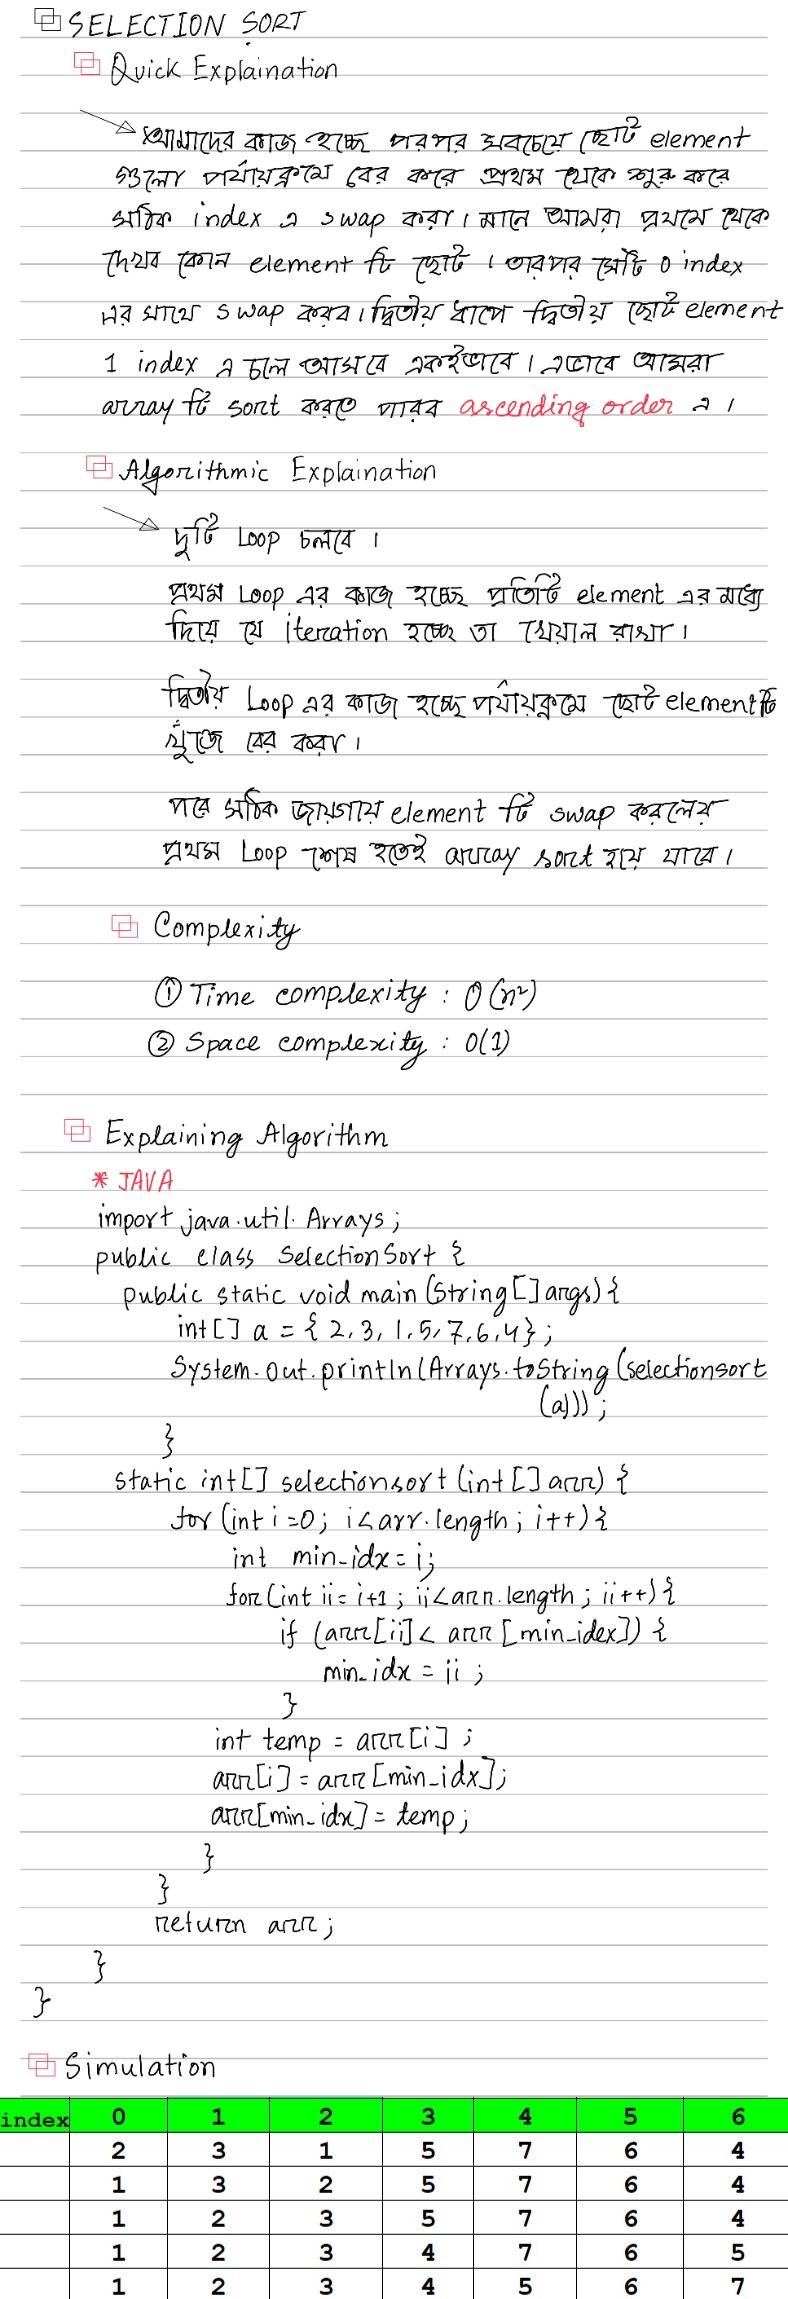 SELECTION SORT
Quick Explaination
আমাদের কাজ হচ্ছে পরপর সবচেয়ে ছোট element
গুলো পর্যায়ক্রমে বের করে প্রথম থেকে শুরু করে
সঠিক index এ swap করা। মানে আমরা প্রথমে থেকে
দেখব কোন element টি ছোট। তারপর সেটি 0 index
এর সাথে swap করব। দ্বিতীয় ধাপে দ্বিতীয় ছোট element
1 index এ চলে আসবে একইভাবে। এভাবে আমরা
array টি sort করতে পারব ascending order এ।
Algorithmic Explaination
দুটি Loop চলবে।
প্রথম Loop এর কাজ হচ্ছে প্রতিটি element এর মধ্যে
দিয়ে যে iteration হচ্ছে তা খেয়াল রাখা।
দ্বিতীয় Loop এর কাজ হচ্ছে পর্যায়ক্রমে ছোট element টি
খুঁজে বের করা।
পরে সঠিক জায়গায় element টি swap করলেয়
প্রথম Loop শেষ হতেই array sort হয়ে যাবে।
Complexity
① Time complexity : O(n²)
② Space complexity : O(1)
Explaining Algorithm
* JAVA
import java.util.Arrays;
public class SelectionSort {
public static void main (String[] args) {
int[] a = { 2, 3, 1, 5, 7, 6, 4};
System.out.println(Arrays.toString(selectionsort
(a)));
}
static int[] selectionsort (int[] arr) {
for (int i=0; i<arr.length; i++) {
int min_idx = i;
for(int ii= i+1 ; ii<arr.length; ii++) {
if (arr[ii] < arr[min_idex]) {
min_idx = ii ;
}
int temp = arr[i] ;
arr[i] = arr[min_idx];
arr[min_idx] = temp;
}
}
return arr;
}
}
Simulation
index 0 1 2 3 4 5 6
2 3 1 5 7 6 4
1 3 2 5 7 6 4
1 2 3 5 7 6 4
1 2 3 4 7 6 5
1 2 3 4 5 6 7